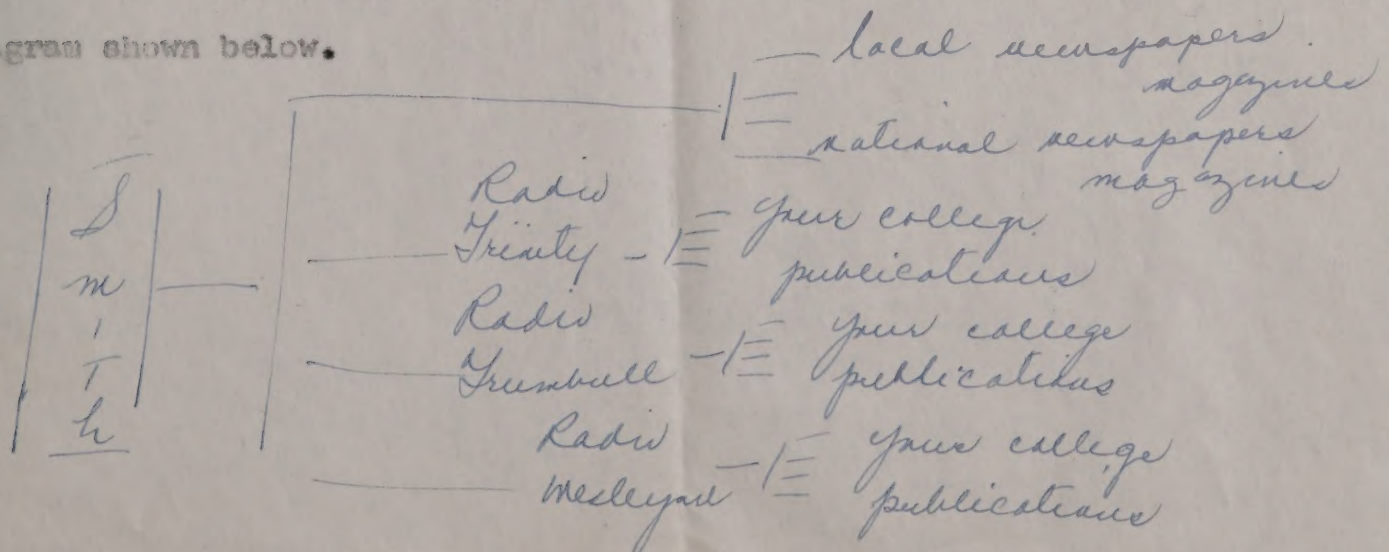 gram shown below.
local newspapers
magazines
national newspapers
magazines
Smith
Radio
Trinity
your college
publications
Radio
Trumbull
your college
publications
Radio
Wesleyan
your college
publications